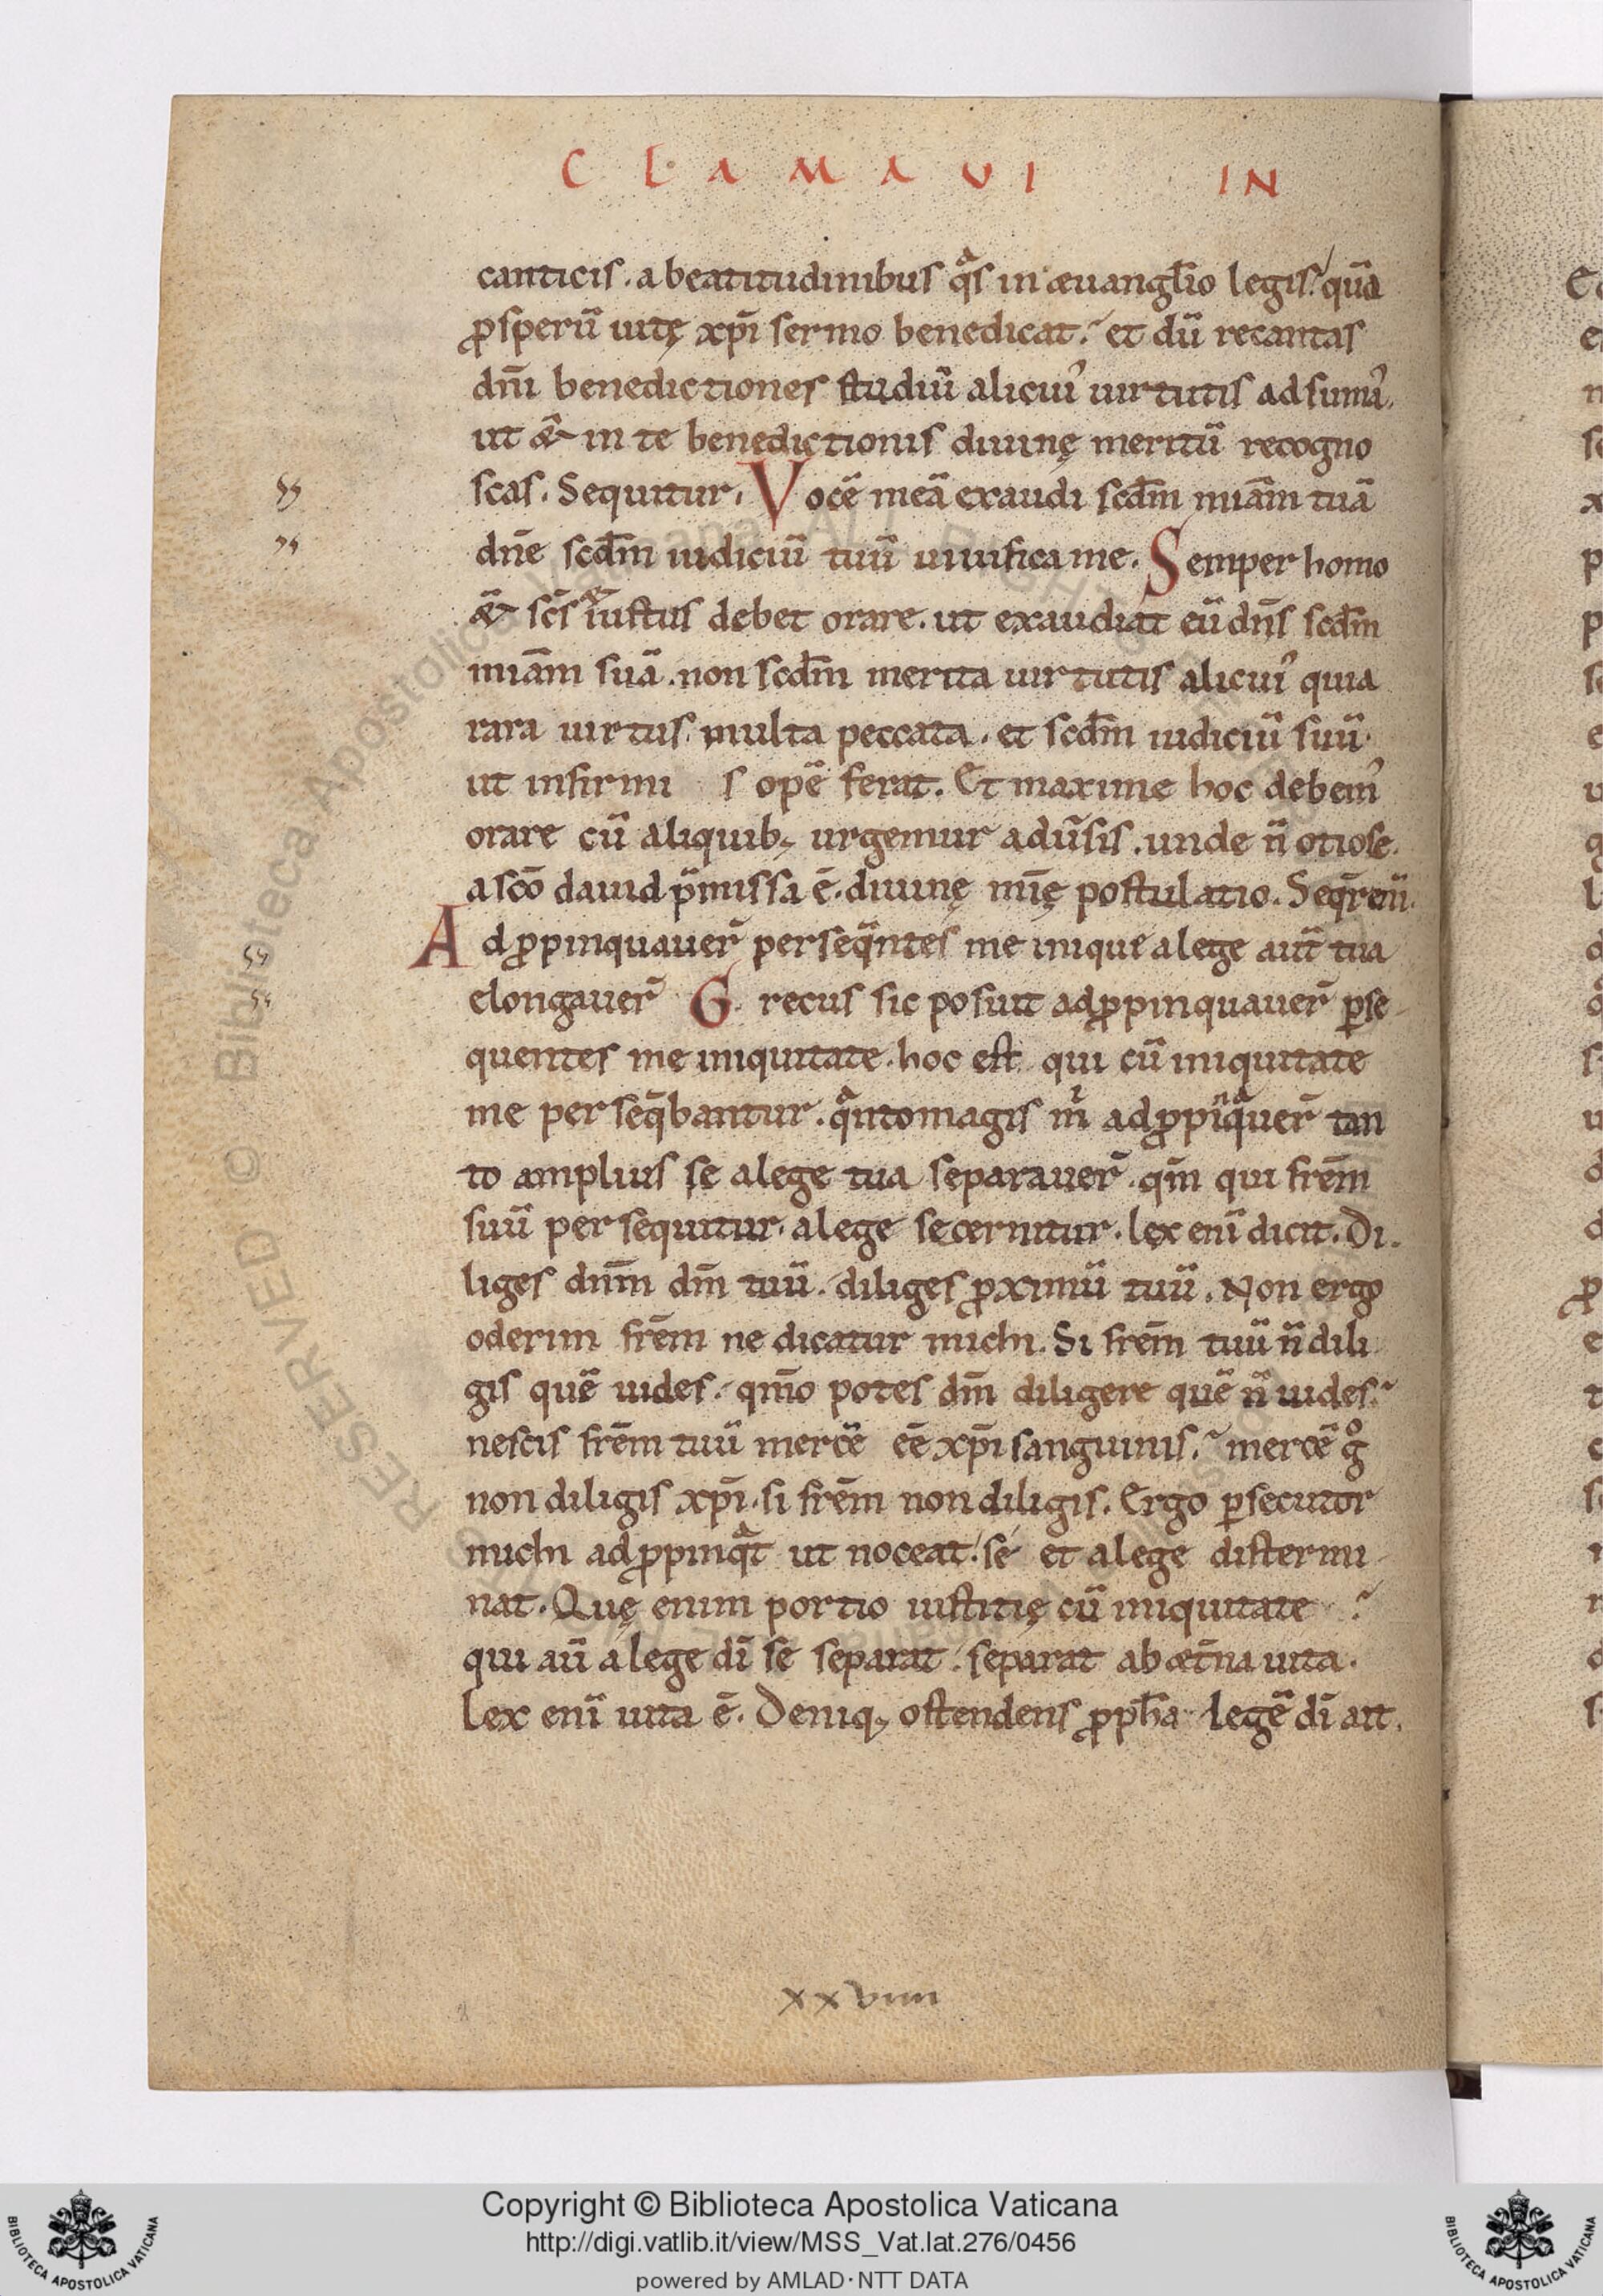 CLAMAVI IN
canticis. a beatitudinibus q̃s in æuangl̄io legis. quā
ꝓsperū uitę xp̄i sermo benedicat. et dū recantas
dn̄i benedictiones studiū alicui᾽ uirtutis adsumā.
ut & in te benedictionis diuinę meritū recogno
scas. Sequitur. Vocē meā exaudi scd̄m miā̄m tuā
dn̄e scd̄m iudiciū tuū uiuifica me. Semper homo
& sc̄s & iustus debet orare. ut exaudiat eū dn̄s scd̄m
miā̄m suā. non scd̄m merita uirtutis alicui᾽ quia
rara uirtus. multa peccata. et scd̄m iudiciū suū.
ut infirmi s opē ferat. Et maxime hoc debem᾽
orare cū aliquib; urgemur adūsis. unde n̄ otiose.
a sc̄o dauid p̄missa ē. diuinę mīę postulatio. Seq̄r enī.
Adꝓpinquauer̄ perseq̄ntes me inique a lege aut̄ tua
elongauer̄ Grecus sic posuit adꝓpinquauer̄ ꝑse
quentes me iniquitate. hoc est qui cū iniquitate
me perseq̄bantur. q̃nto magis m̄ adꝓpīq̃uer̄ tan
to amplius se a lege tua separauer̄. qm̄ qui frēm
suū persequitur. a lege secernitur. lex enī dicit. Di.
liges dn̄m dm̄ tuū. diliges ꝓximū tuū. Non ergo
oderim frēm ne dicatur michi. Si frēm tuū n̄ dili
gis quē uides. qm̄o potes dm̄ diligere quē n̄ uides.
nescis frēm tuū mercē eē xp̄i sanguinis. mercē g̊
non diligis xp̄i. si frēm non diligis. Ergo ꝑsecutor
michi adꝓpinq̃t ut noceat. se et a lege distermi
nat. Quę enim portio iustitię cū iniquitate
qui aū a lege dī se separat. separat ab æt̄na uita.
Lex enī uita ē. Deniq; ostendens ꝓph̄a legē dī ait.
xxviiii
Copyright © Biblioteca Apostolica Vaticana
http://digi.vatlib.it/view/MSS_Vat.lat.276/0456
powered by AMLAD·NTT DATA
BIBLIOTECA APOSTOLICA VATICANA
BIBLIOTECA APOSTOLICA VATICANA